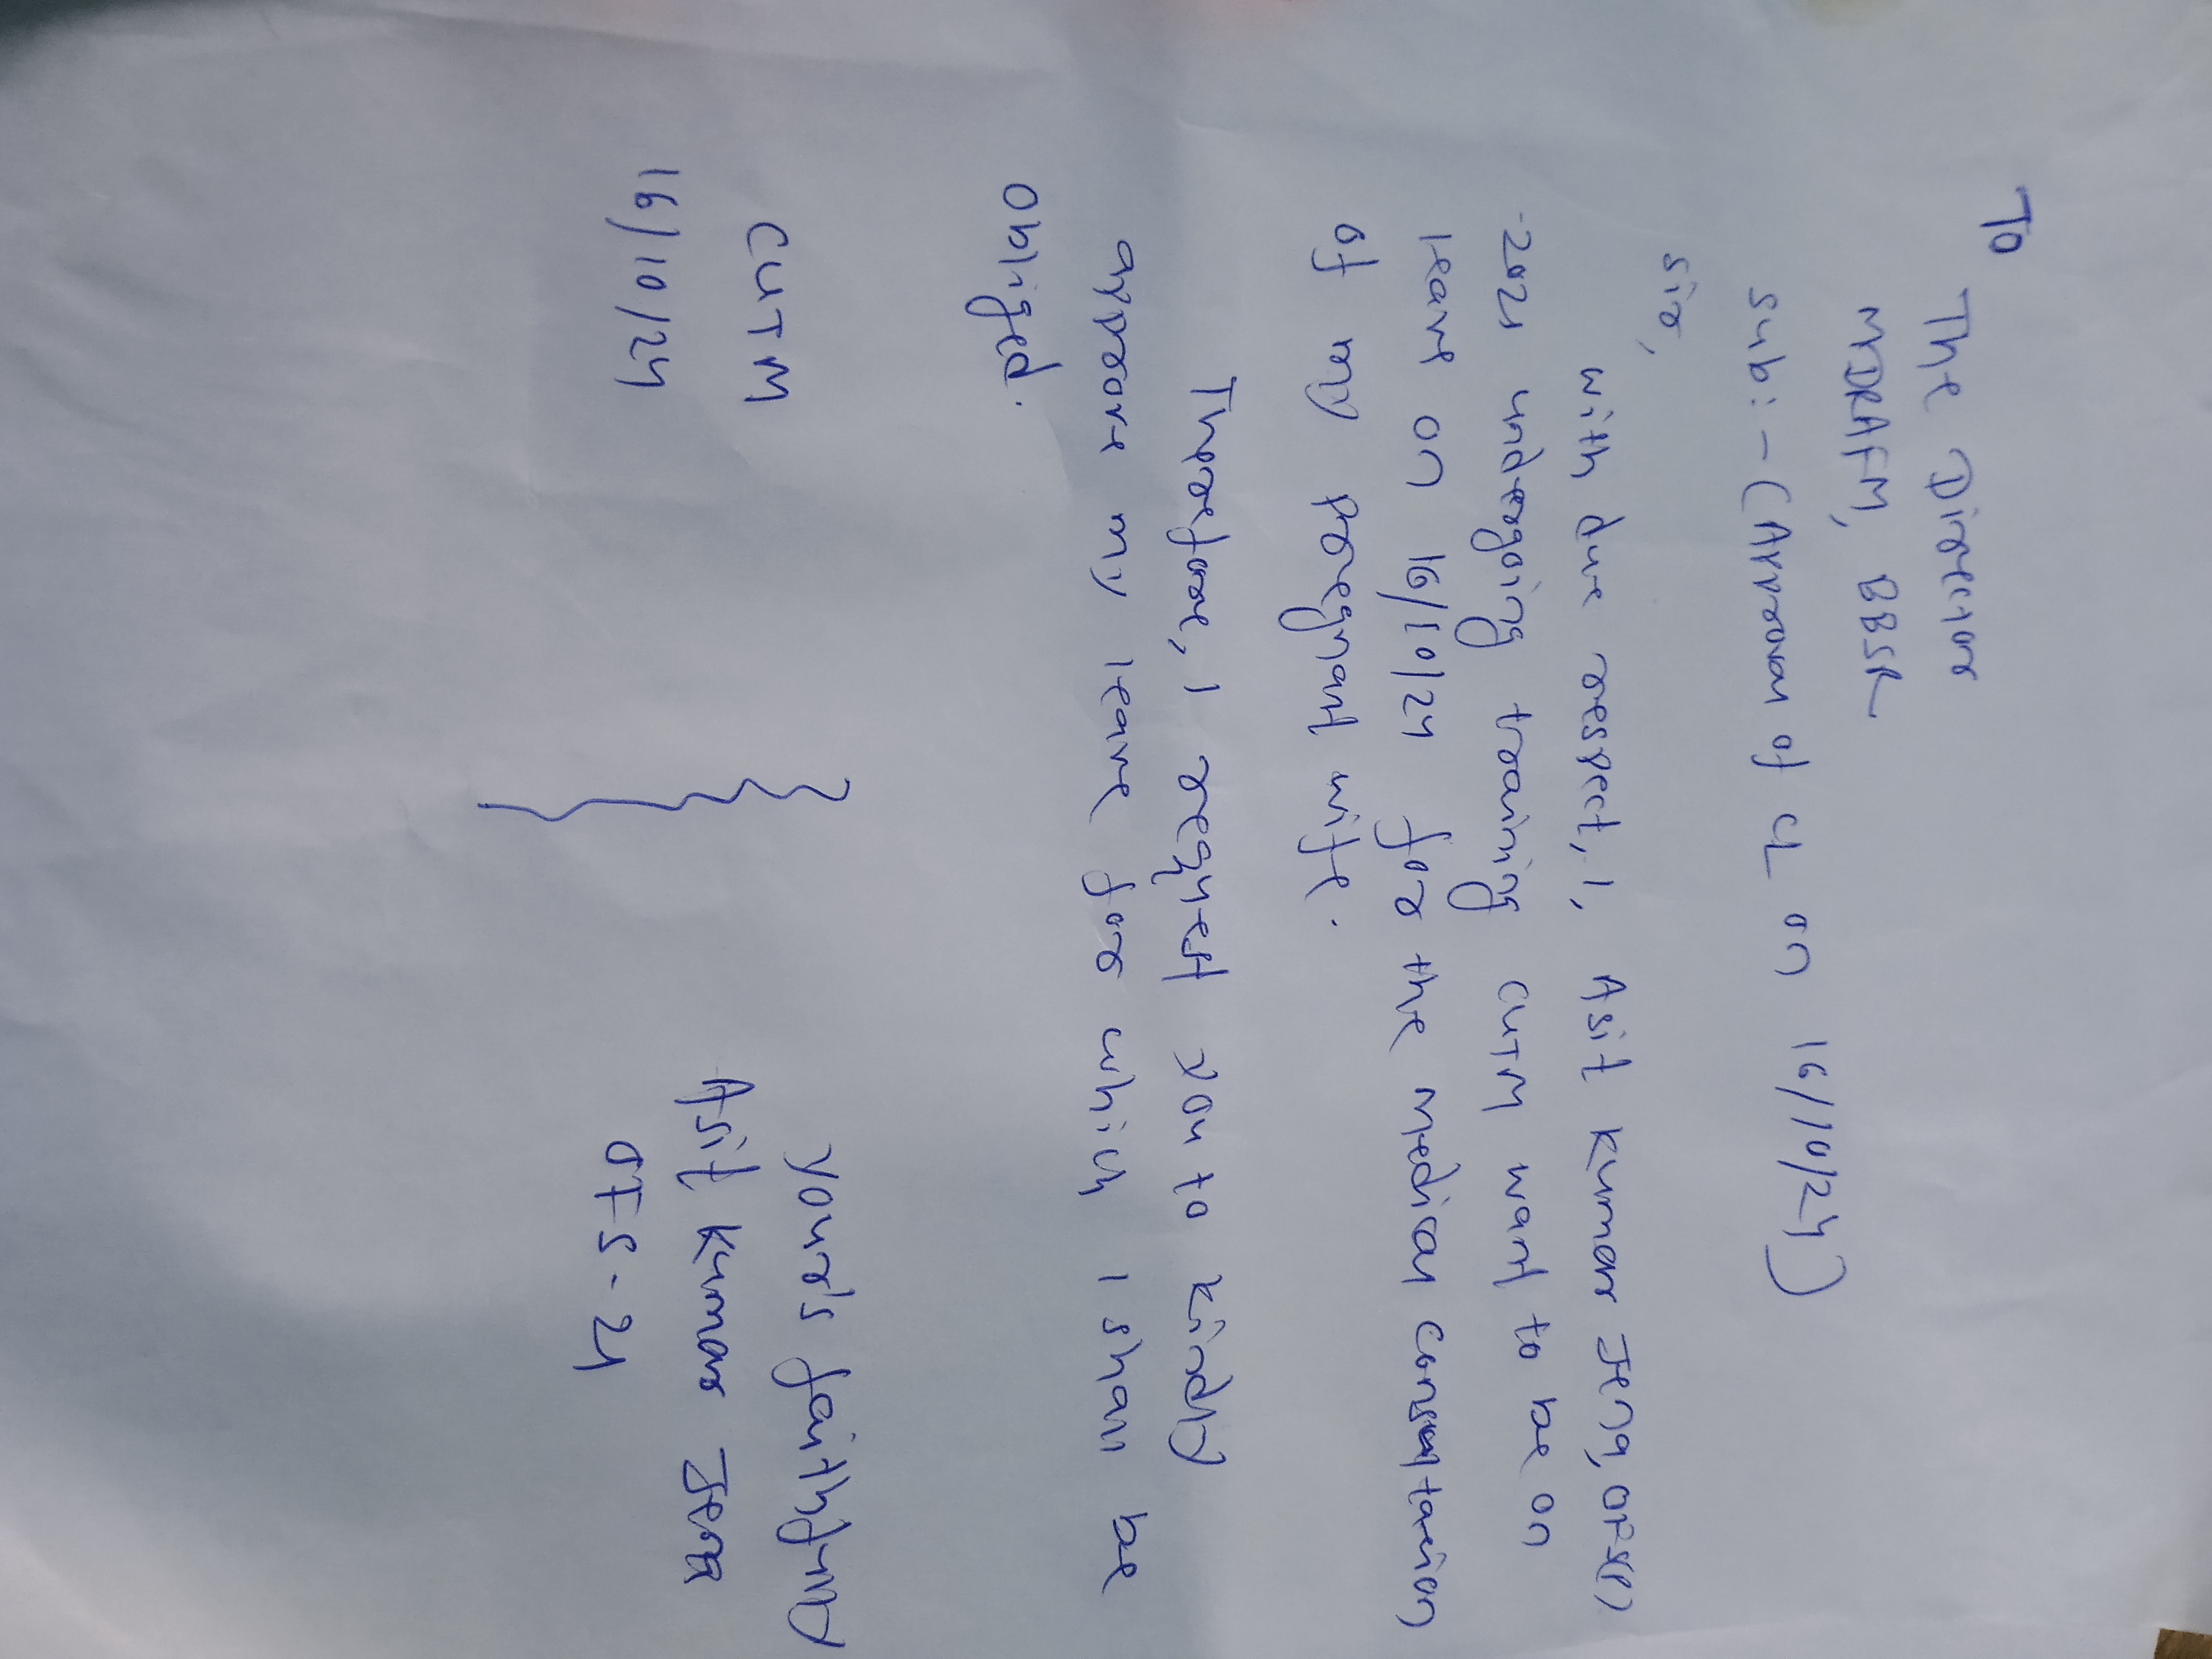 To
The Director
MDRAFM, BBSR
Sub:- (Approval of CL on 16/10/24)
Sir,
With due respect, I, Asit Kumar Jena,
-2021 undergoing training CUTM want to be on
leave on 16/10/24 for the medical consultation
of my pregnant wife.
Therefore, I request you to kindly
approve my leave for which I shall be
obliged.
CUTM
16/10/24
Your's faithfully
Asit Kumar Jena
OFS-24